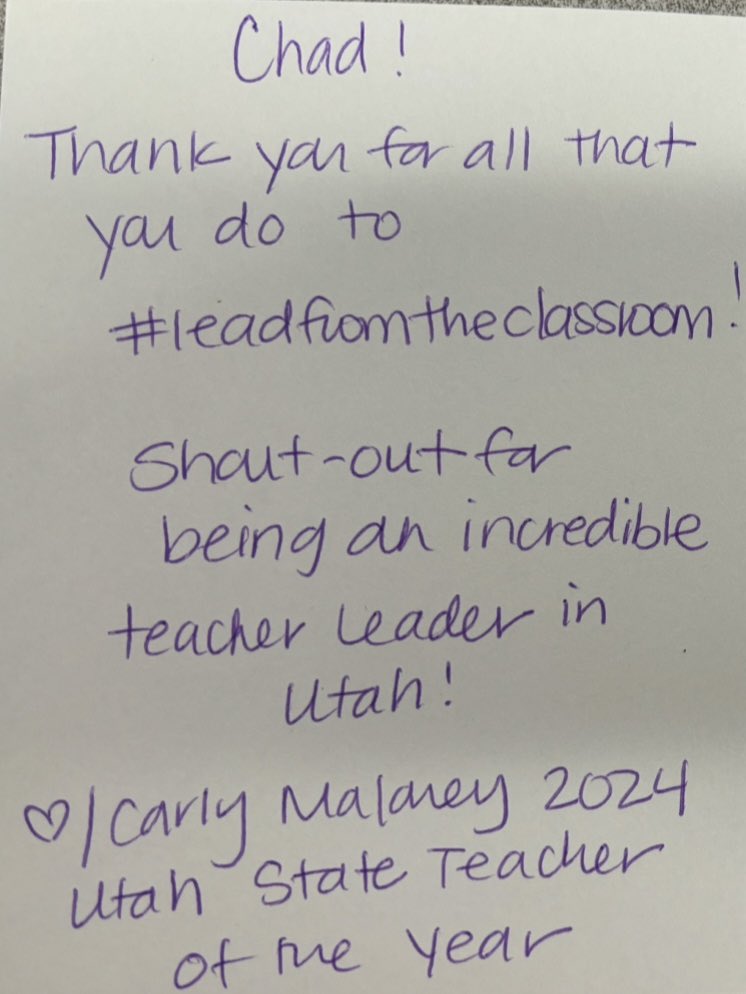 Chad!
Thank you for all that
you do to
#leadfromtheclassroom!
Shout-out for
being an incredible
teacher leader in
Utah!
♡/Carly Maloney 2024
Utah State Teacher
of the Year